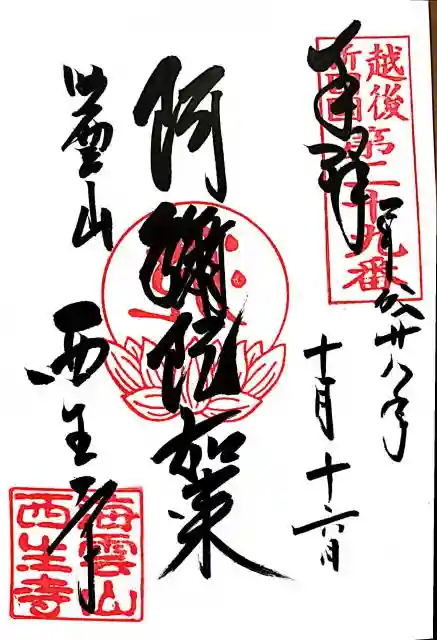 越後
新四国
第二十九番
奉拝
平成廿八年
十月十六日
阿彌陀如来
海雲山
西生寺
海雲山
西生寺